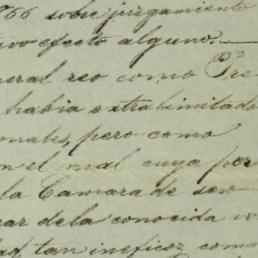 766 sobre juzgamiento
vo efecto alguno.
eral reo como Pre
habia extralimitado
onales, pero como
n el mal cuya per
la Camara de sen
ar de la conocida vo
tan ineficaz como